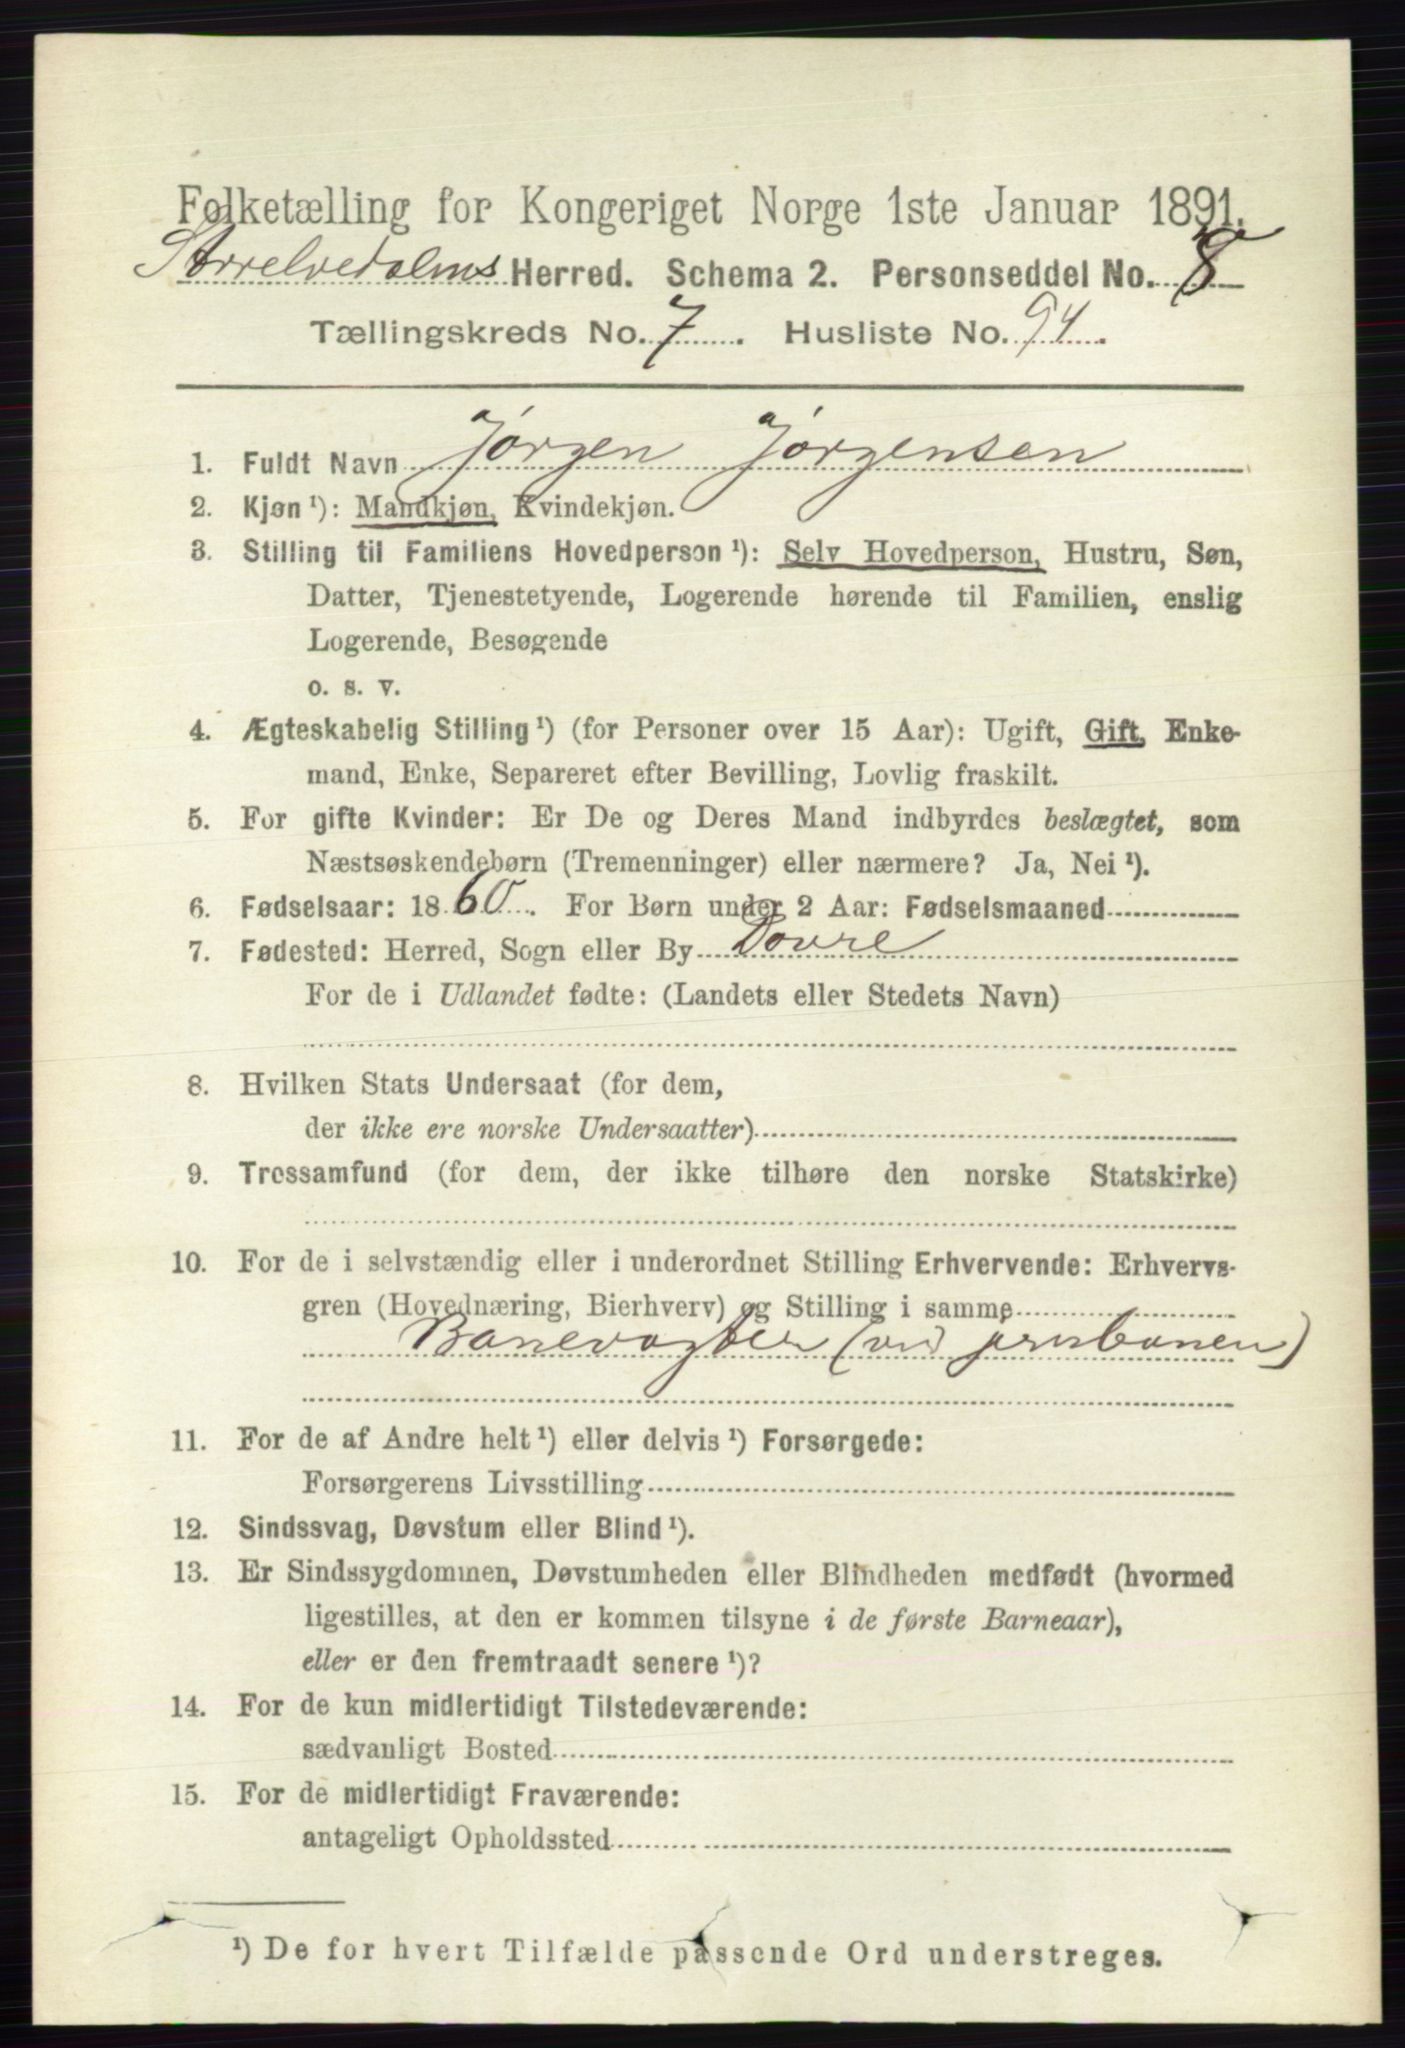 Folketælling for Kongeriget Norge 1ste Januar 1891.
Storrelvedalens Herred. Schema 2. Personseddel No. 8
Tællingskreds No. 7. Husliste No. 94.
1. Fuldt Navn Jörgen Jörgensen
2. Kjøn ¹): Mandkjøn, Kvindekjøn.
3. Stilling til Familiens Hovedperson ¹): Selv Hovedperson, Hustru, Søn,
Datter, Tjenestetyende, Logerende hørende til Familien, enslig
Logerende, Besøgende
o. s. v.
4. Ægteskabelig Stilling ¹) (for Personer over 15 Aar): Ugift, Gift, Enke-
mand, Enke, Separeret efter Bevilling, Lovlig fraskilt.
5. For gifte Kvinder: Er De og Deres Mand indbyrdes beslægtet, som
Næstsøskendebørn (Tremenninger) eller nærmere? Ja, Nei ¹).
6. Fødselsaar: 1860. For Børn under 2 Aar: Fødselsmaaned
7. Fødested: Herred, Sogn eller By Dovre
For de i Udlandet fødte: (Landets eller Stedets Navn)
8. Hvilken Stats Undersaat (for dem,
der ikke ere norske Undersaatter)
9. Trossamfund (for dem, der ikke tilhøre den norske Statskirke)
10. For de i selvstændig eller i underordnet Stilling Erhvervende: Erhvervs-
gren (Hovednæring, Bierhverv) og Stilling i samme
Banevogter (ved jernbanen)
11. For de af Andre helt ¹) eller delvis ¹) Forsørgede:
Forsørgerens Livsstilling
12. Sindssvag, Døvstum eller Blind ¹).
13. Er Sindssygdommen, Døvstumheden eller Blindheden medfødt (hvormed
ligestilles, at den er kommen tilsyne i de første Barneaar),
eller er den fremtraadt senere ¹)?
14. For de kun midlertidigt Tilstedeværende:
sædvanligt Bosted
15. For de midlertidigt Fraværende:
antageligt Opholdssted
¹) De for hvert Tilfælde passende Ord understreges.